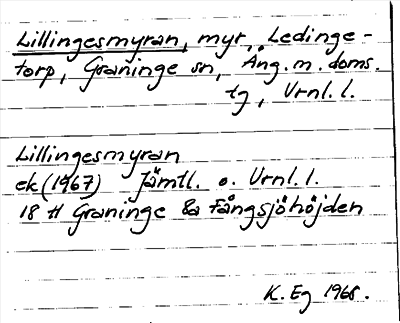 Lillingesmyran, myr, Ledinge-
torp, Graninge sn, Äng. m. doms.
tg, Vrnl. l.
Lillingesmyran
ek (1967) Jämtl. o. Vrnl. l.
18 H Graninge 8a Fångsjöhöjden
K. Eg 1968.